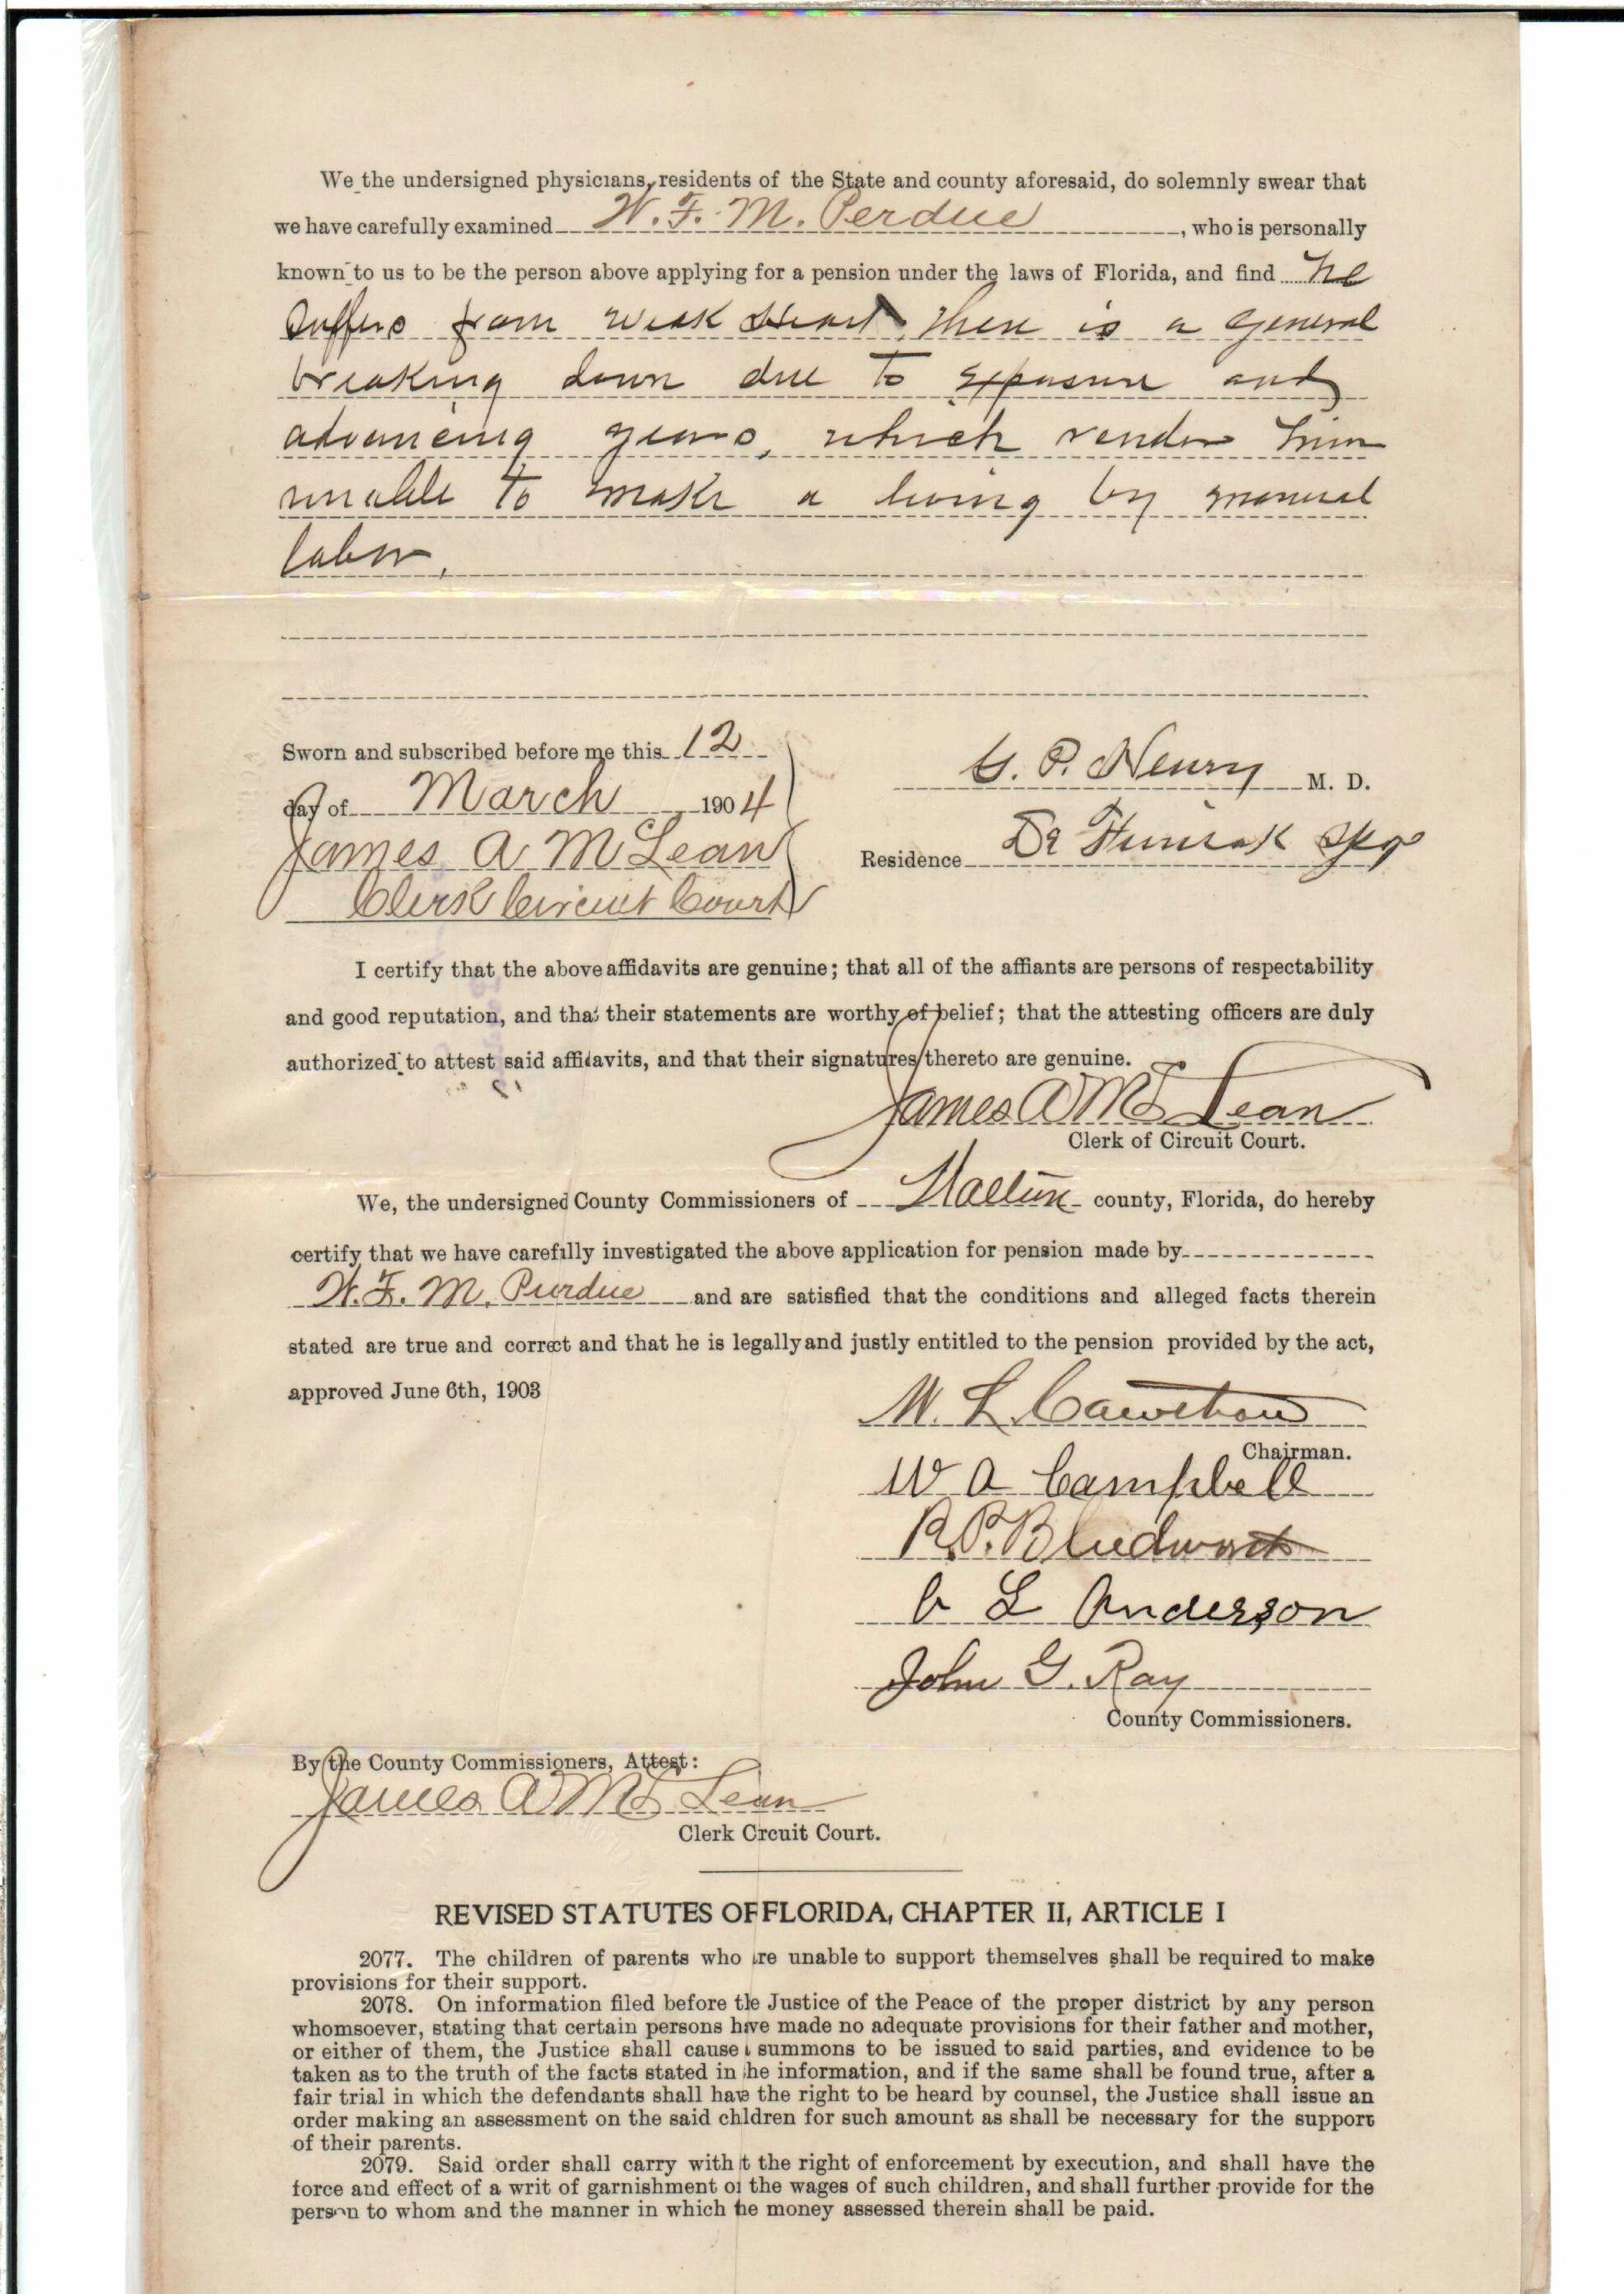 We the undersigned physicians, residents of the State and county aforesaid, do solemnly swear that
we have carefully examined W. F. M. Perdue, who is personally
known to us to be the person above applying for a pension under the laws of Florida, and find he
suffers from weak Heart, there is a general
breaking down due to exposure and
advancing years, which render him
unable to make a living by manual
labor,
Sworn and subscribed before me this 12
day of March 1904
James A McLean
Clerk Circuit Court
G. P. Henry M. D.
Residence De Funiak Spgs
I certify that the above affidavits are genuine; that all of the affiants are persons of respectability
and good reputation, and that their statements are worthy of belief; that the attesting officers are duly
authorized to attest said affidavits, and that their signatures thereto are genuine.
James A McLean
Clerk of Circuit Court.
We, the undersigned County Commissioners of Walton county, Florida, do hereby
certify that we have carefully investigated the above application for pension made by
W. F. M. Purdue and are satisfied that the conditions and alleged facts therein
stated are true and correct and that he is legally and justly entitled to the pension provided by the act,
approved June 6th, 1903
W. L. Cawthon
Chairman.
W A Campbell
R. P. Bludworth
C L Anderson
John G. Ray
County Commissioners.
By the County Commissioners, Attest:
James A McLean
Clerk Crcuit Court.
REVISED STATUTES OF FLORIDA, CHAPTER II, ARTICLE I
2077. The children of parents who are unable to support themselves shall be required to make
provisions for their support.
2078. On information filed before the Justice of the Peace of the proper district by any person
whomsoever, stating that certain persons have made no adequate provisions for their father and mother,
or either of them, the Justice shall cause a summons to be issued to said parties, and evidence to be
taken as to the truth of the facts stated in the information, and if the same shall be found true, after a
fair trial in which the defendants shall have the right to be heard by counsel, the Justice shall issue an
order making an assessment on the said children for such amount as shall be necessary for the support
of their parents.
2079. Said order shall carry with it the right of enforcement by execution, and shall have the
force and effect of a writ of garnishment on the wages of such children, and shall further provide for the
person to whom and the manner in which the money assessed therein shall be paid.